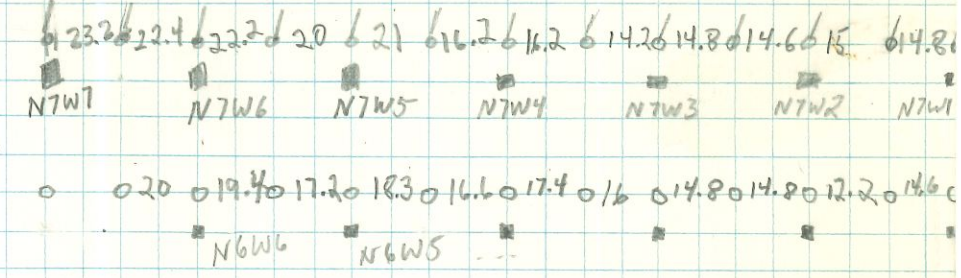 23.2 22.4 22.2 20 21 16.2 16.2 14.2 14.8 14.6 15 14.8
N7W7 N7W6 N7W5 N7W4 N7W3 N7W2 N7W1
20 19.4 17.2 18.3 16.6 17.4 16 14.8 14.8 12.2 14.6
N6W6 N6W5 ...